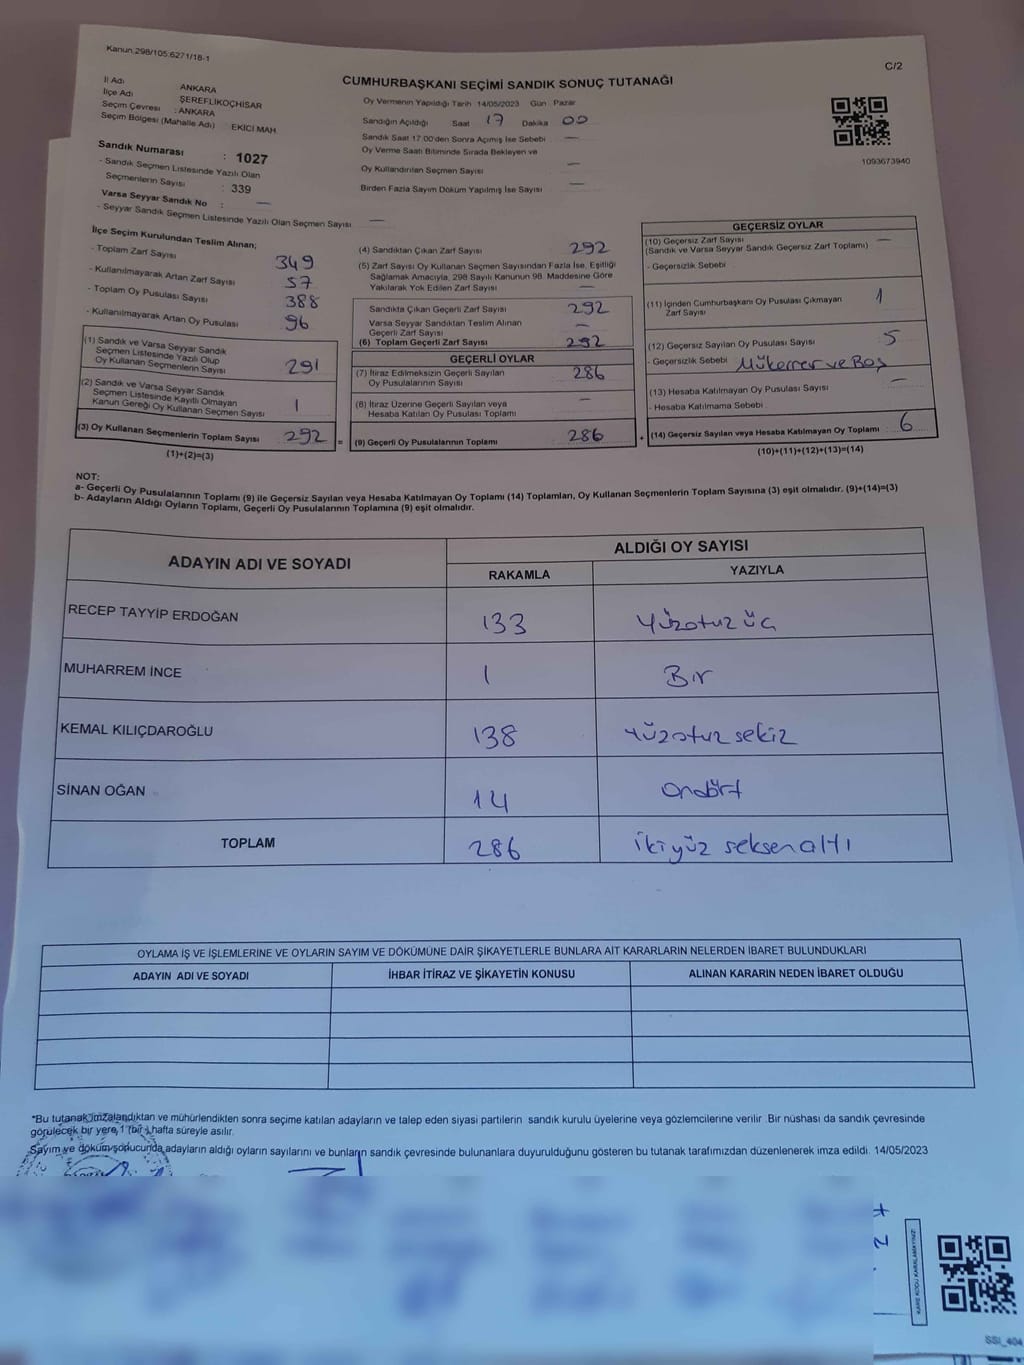 Kanun 298/105 6271/18-1
C/2
CUMHURBAŞKANI SEÇİMİ SANDIK SONUÇ TUTANAĞI
İl Adı ANKARA
İlçe Adı ŞEREFLİKOÇHİSAR
Seçim Çevresi : ANKARA
Seçim Bölgesi (Mahalle Adı) : EKİCİ MAH.
Sandık Numarası : 1027
- Sandık Seçmen Listesinde Yazılı Olan
Seçmenlerin Sayısı : 339
Varsa Seyyar Sandık No : —
- Seyyar Sandık Seçmen Listesinde Yazılı Olan Seçmen Sayısı —
Oy Vermenin Yapıldığı Tarih 14/05/2023 Gün : Pazar
Sandığın Açıldığı Saat 17 Dakika 00
Sandık Saat 17:00'den Sonra Açmış İse Sebebi —
Oy Verme Saati Bitiminde Sırada Bekleyen ve
Oy Kullandırılan Seçmen Sayısı —
Birden Fazla Sayım Döküm Yapılmış İse Sayısı —
1093673940
İlçe Seçim Kurulundan Teslim Alınan;
- Toplam Zarf Sayısı 349
- Kullanılmayarak Artan Zarf Sayısı 57
- Toplam Oy Pusulası Sayısı 388
- Kullanılmayarak Artan Oy Pusulası 96
(1) Sandık ve Varsa Seyyar Sandık
Seçmen Listesinde Yazılı Olup
Oy Kullanan Seçmenlerin Sayısı 291
(2) Sandık ve Varsa Seyyar Sandık
Seçmen Listesinde Kayıtlı Olmayan
Kanun Gereği Oy Kullanan Seçmen Sayısı 1
(3) Oy Kullanan Seçmenlerin Toplam Sayısı 292 =
(1)+(2)=(3)
(4) Sandıktan Çıkan Zarf Sayısı 292
(5) Zarf Sayısı Oy Kullanan Seçmen Sayısından Fazla İse, Eşitliği
Sağlamak Amacıyla, 298 Sayılı Kanunun 98. Maddesine Göre
Yakılarak Yok Edilen Zarf Sayısı —
Sandıkta Çıkan Geçerli Zarf Sayısı 292
Varsa Seyyar Sandıktan Teslim Alınan
Geçerli Zarf Sayısı —
(6) Toplam Geçerli Zarf Sayısı 292
GEÇERLİ OYLAR
(7) İtiraz Edilmeksizin Geçerli Sayılan
Oy Pusulalarının Sayısı 286
(8) İtiraz Üzerine Geçerli Sayılan veya
Hesaba Katılan Oy Pusulası Toplamı —
(9) Geçerli Oy Pusulalarının Toplamı 286 +
GEÇERSİZ OYLAR
(10) Geçersiz Zarf Sayısı —
(Sandık ve Varsa Seyyar Sandık Geçersiz Zarf Toplamı)
- Geçersizlik Sebebi
(11) İçinden Cumhurbaşkanı Oy Pusulası Çıkmayan
Zarf Sayısı 1
(12) Geçersiz Sayılan Oy Pusulası Sayısı 5
- Geçersizlik Sebebi Mükerrer ve Boş
(13) Hesaba Katılmayan Oy Pusulası Sayısı —
- Hesaba Katılmama Sebebi
(14) Geçersiz Sayılan veya Hesaba Katılmayan Oy Toplamı 6
(10)+(11)+(12)+(13)=(14)
NOT:
a- Geçerli Oy Pusulalarının Toplamı (9) ile Geçersiz Sayılan veya Hesaba Katılmayan Oy Toplamı (14) Toplamları, Oy Kullanan Seçmenlerin Toplam Sayısına (3) eşit olmalıdır. (9)+(14)=(3)
b- Adayların Aldığı Oyların Toplamı, Geçerli Oy Pusulalarının Toplamına (9) eşit olmalıdır.
ADAYIN ADI VE SOYADI ALDIĞI OY SAYISI
RAKAMLA YAZIYLA
RECEP TAYYİP ERDOĞAN 133 Yüzotuz üç
MUHARREM İNCE 1 Bir
KEMAL KILIÇDAROĞLU 138 yüzotuz sekiz
SİNAN OĞAN 14 ondört
TOPLAM 286 ikiyüz seksen altı
OYLAMA İŞ VE İŞLEMLERİNE VE OYLARIN SAYIM VE DÖKÜMÜNE DAİR ŞİKAYETLERLE BUNLARA AİT KARARLARIN NELERDEN İBARET BULUNDUKLARI
ADAYIN ADI VE SOYADI İHBAR İTİRAZ VE ŞİKAYETİN KONUSU ALINAN KARARIN NEDEN İBARET OLDUĞU
*Bu tutanak imzalandıktan ve mühürlendikten sonra seçime katılan adayların ve talep eden siyasi partilerin sandık kurulu üyelerine veya gözlemcilerine verilir. Bir nüshası da sandık çevresinde
görülecek bir yere 1 (bir) hafta süreyle asılır.
Sayım ve döküm sonucunda adayların aldığı oyların sayılarını ve bunların sandık çevresinde bulunanlara duyurulduğunu gösteren bu tutanak tarafımızdan düzenlenerek imza edildi. 14/05/2023
KARE KODU KARALAMAYINIZ!
SSI_404